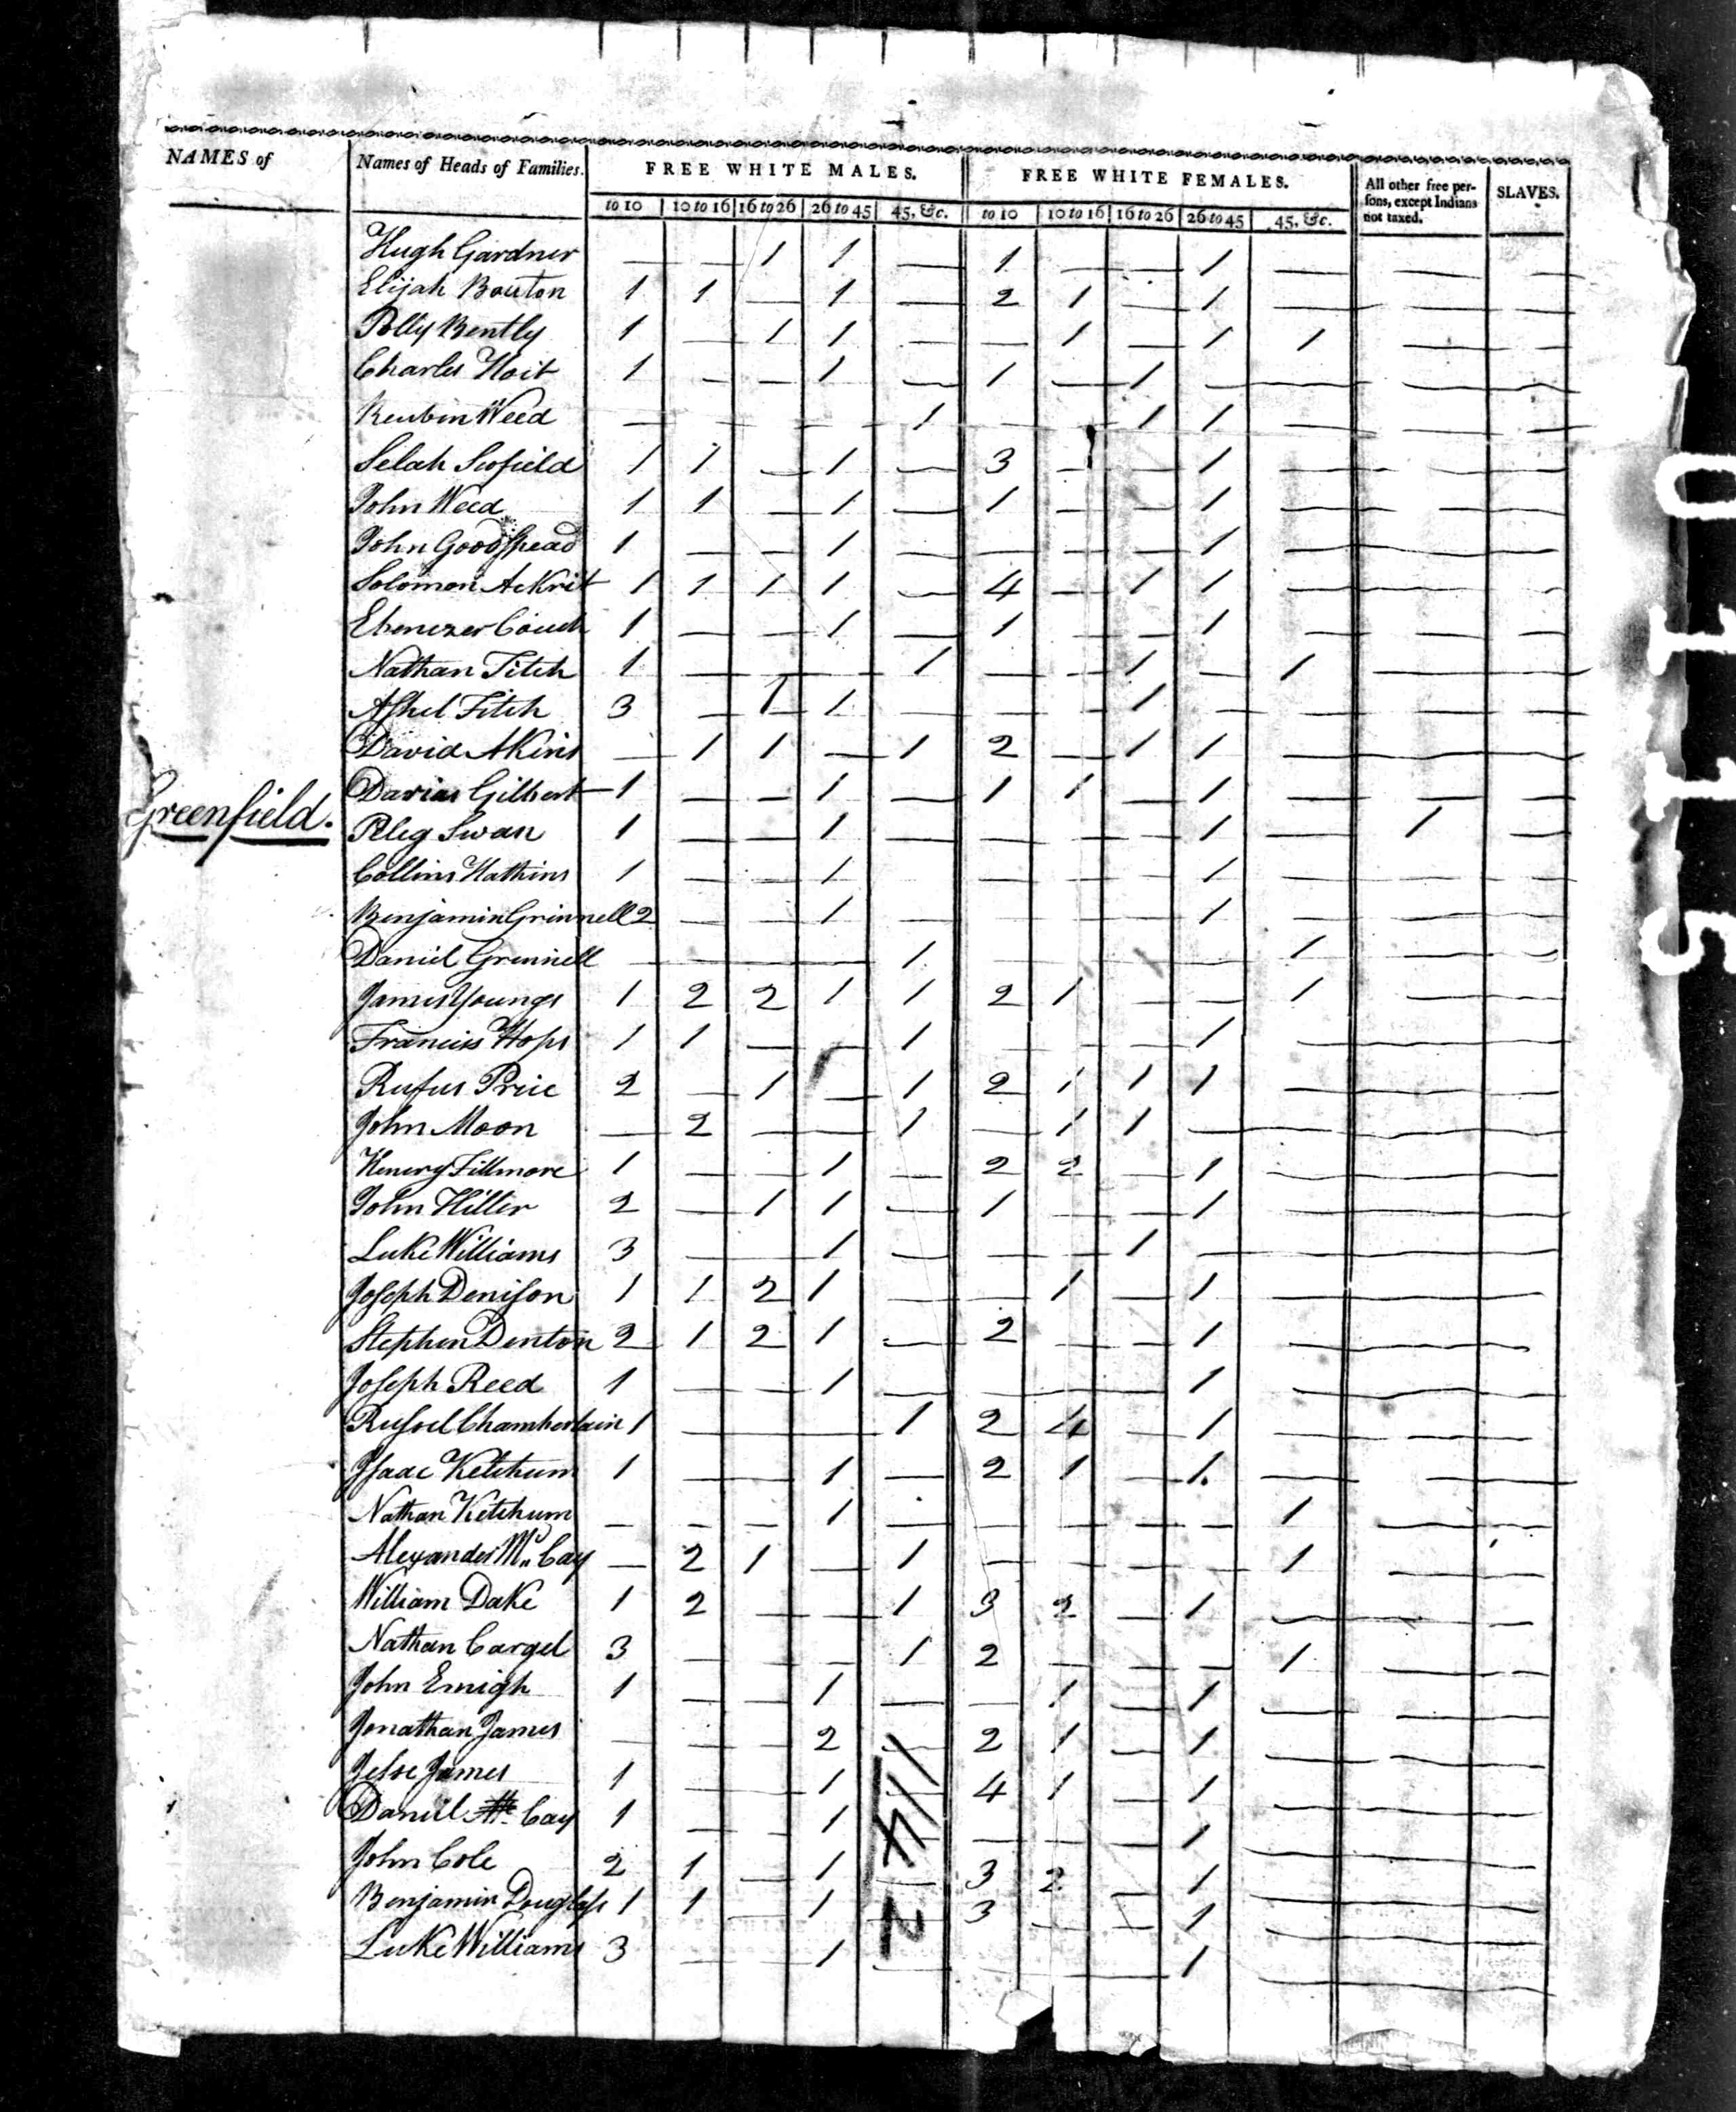 NAMES of | Names of Heads of Families. | FREE WHITE MALES. | FREE WHITE FEMALES. | All other free persons, except Indians not taxed. | SLAVES.
to 10 | 10 to 16 | 16 to 26 | 26 to 45 | 45, &c. | to 10 | 10 to 16 | 16 to 26 | 26 to 45 | 45, &c.
Hugh Gardner — — 1 1 — 1 — — 1 — — —
Elijah Bouton 1 1 — 1 — 2 1 — 1 — — —
Polly Bently 1 — 1 1 — — 1 — 1 1 — —
Charles Hoit 1 — — 1 — 1 — 1 — — — —
Reubin Weed — — — — 1 — — 1 1 — — —
Selah Scofield 1 1 — 1 — 3 — — 1 — — —
John Weed 1 1 — 1 — 1 — — 1 — — —
John Goodspead 1 — — 1 — — — — 1 — — —
Solomon Ackrit 1 1 1 1 — 4 — 1 1 — — —
Ebenezer Couch 1 — — 1 — 1 — — 1 — — —
Nathan Fitch 1 — — — 1 — — 1 — 1 — —
Ashel Fitch 3 — 1 1 — — — 1 — — — —
David Akins — 1 1 — 1 2 — 1 1 — — —
Darias Gilbert 1 — — 1 — 1 1 — 1 — — —
Greenfield. Peleg Swan 1 — — 1 — — — — 1 — 1 —
Collins Hathins 1 — — 1 — — — — 1 — — —
Benjamin Grinnell 2 — — 1 — — — — 1 — — —
Daniel Grennell — — — — 1 — — — — 1 — —
James Youngs 1 2 2 1 1 2 1 — — 1 — —
Francis Hops 1 1 — — 1 — — — 1 — — —
Rufus Price 2 — 1 — 1 2 1 1 1 — — —
John Moon — 2 — — 1 — 1 1 — — — —
Henery Fillmore 1 — — 1 — 2 2 — 1 — — —
John Hiller 2 — 1 1 — 1 — — 1 — — —
Luke Williams 3 — — 1 — — — 1 — — — —
Joseph Denison 1 1 2 1 — — 1 — 1 — — —
Stephen Denton 2 1 2 1 — 2 — — 1 — — —
Joseph Reed 1 — — 1 — — — — 1 — — —
Russel Chamberlain 1 — — — 1 2 4 — 1 — — —
Isaac Ketchum 1 — — 1 — 2 1 — 1 — — —
Nathan Ketchum — — — 1 — — — — — 1 — —
Alexander Mc Cay — 2 1 — 1 — — — — 1 — —
William Dake 1 2 — — 1 3 2 — 1 — — —
Nathan Cargel 3 — — — 1 2 — — — 1 — —
John Emigh 1 — — 1 — — 1 — 1 — — —
Jonathan James — — — 2 — 2 1 — 1 — — —
Jesse James 1 — — 1 — 4 1 — 1 — — —
Daniel Mc Cay 1 — — 1 — — — — 1 — — —
John Cole 2 1 — 1 — 3 2 — 1 — — —
Benjamin Douglass 1 1 — 1 — 3 — — 1 — — —
Luke Williams 3 — — 1 — — — — 1 — — —
0115